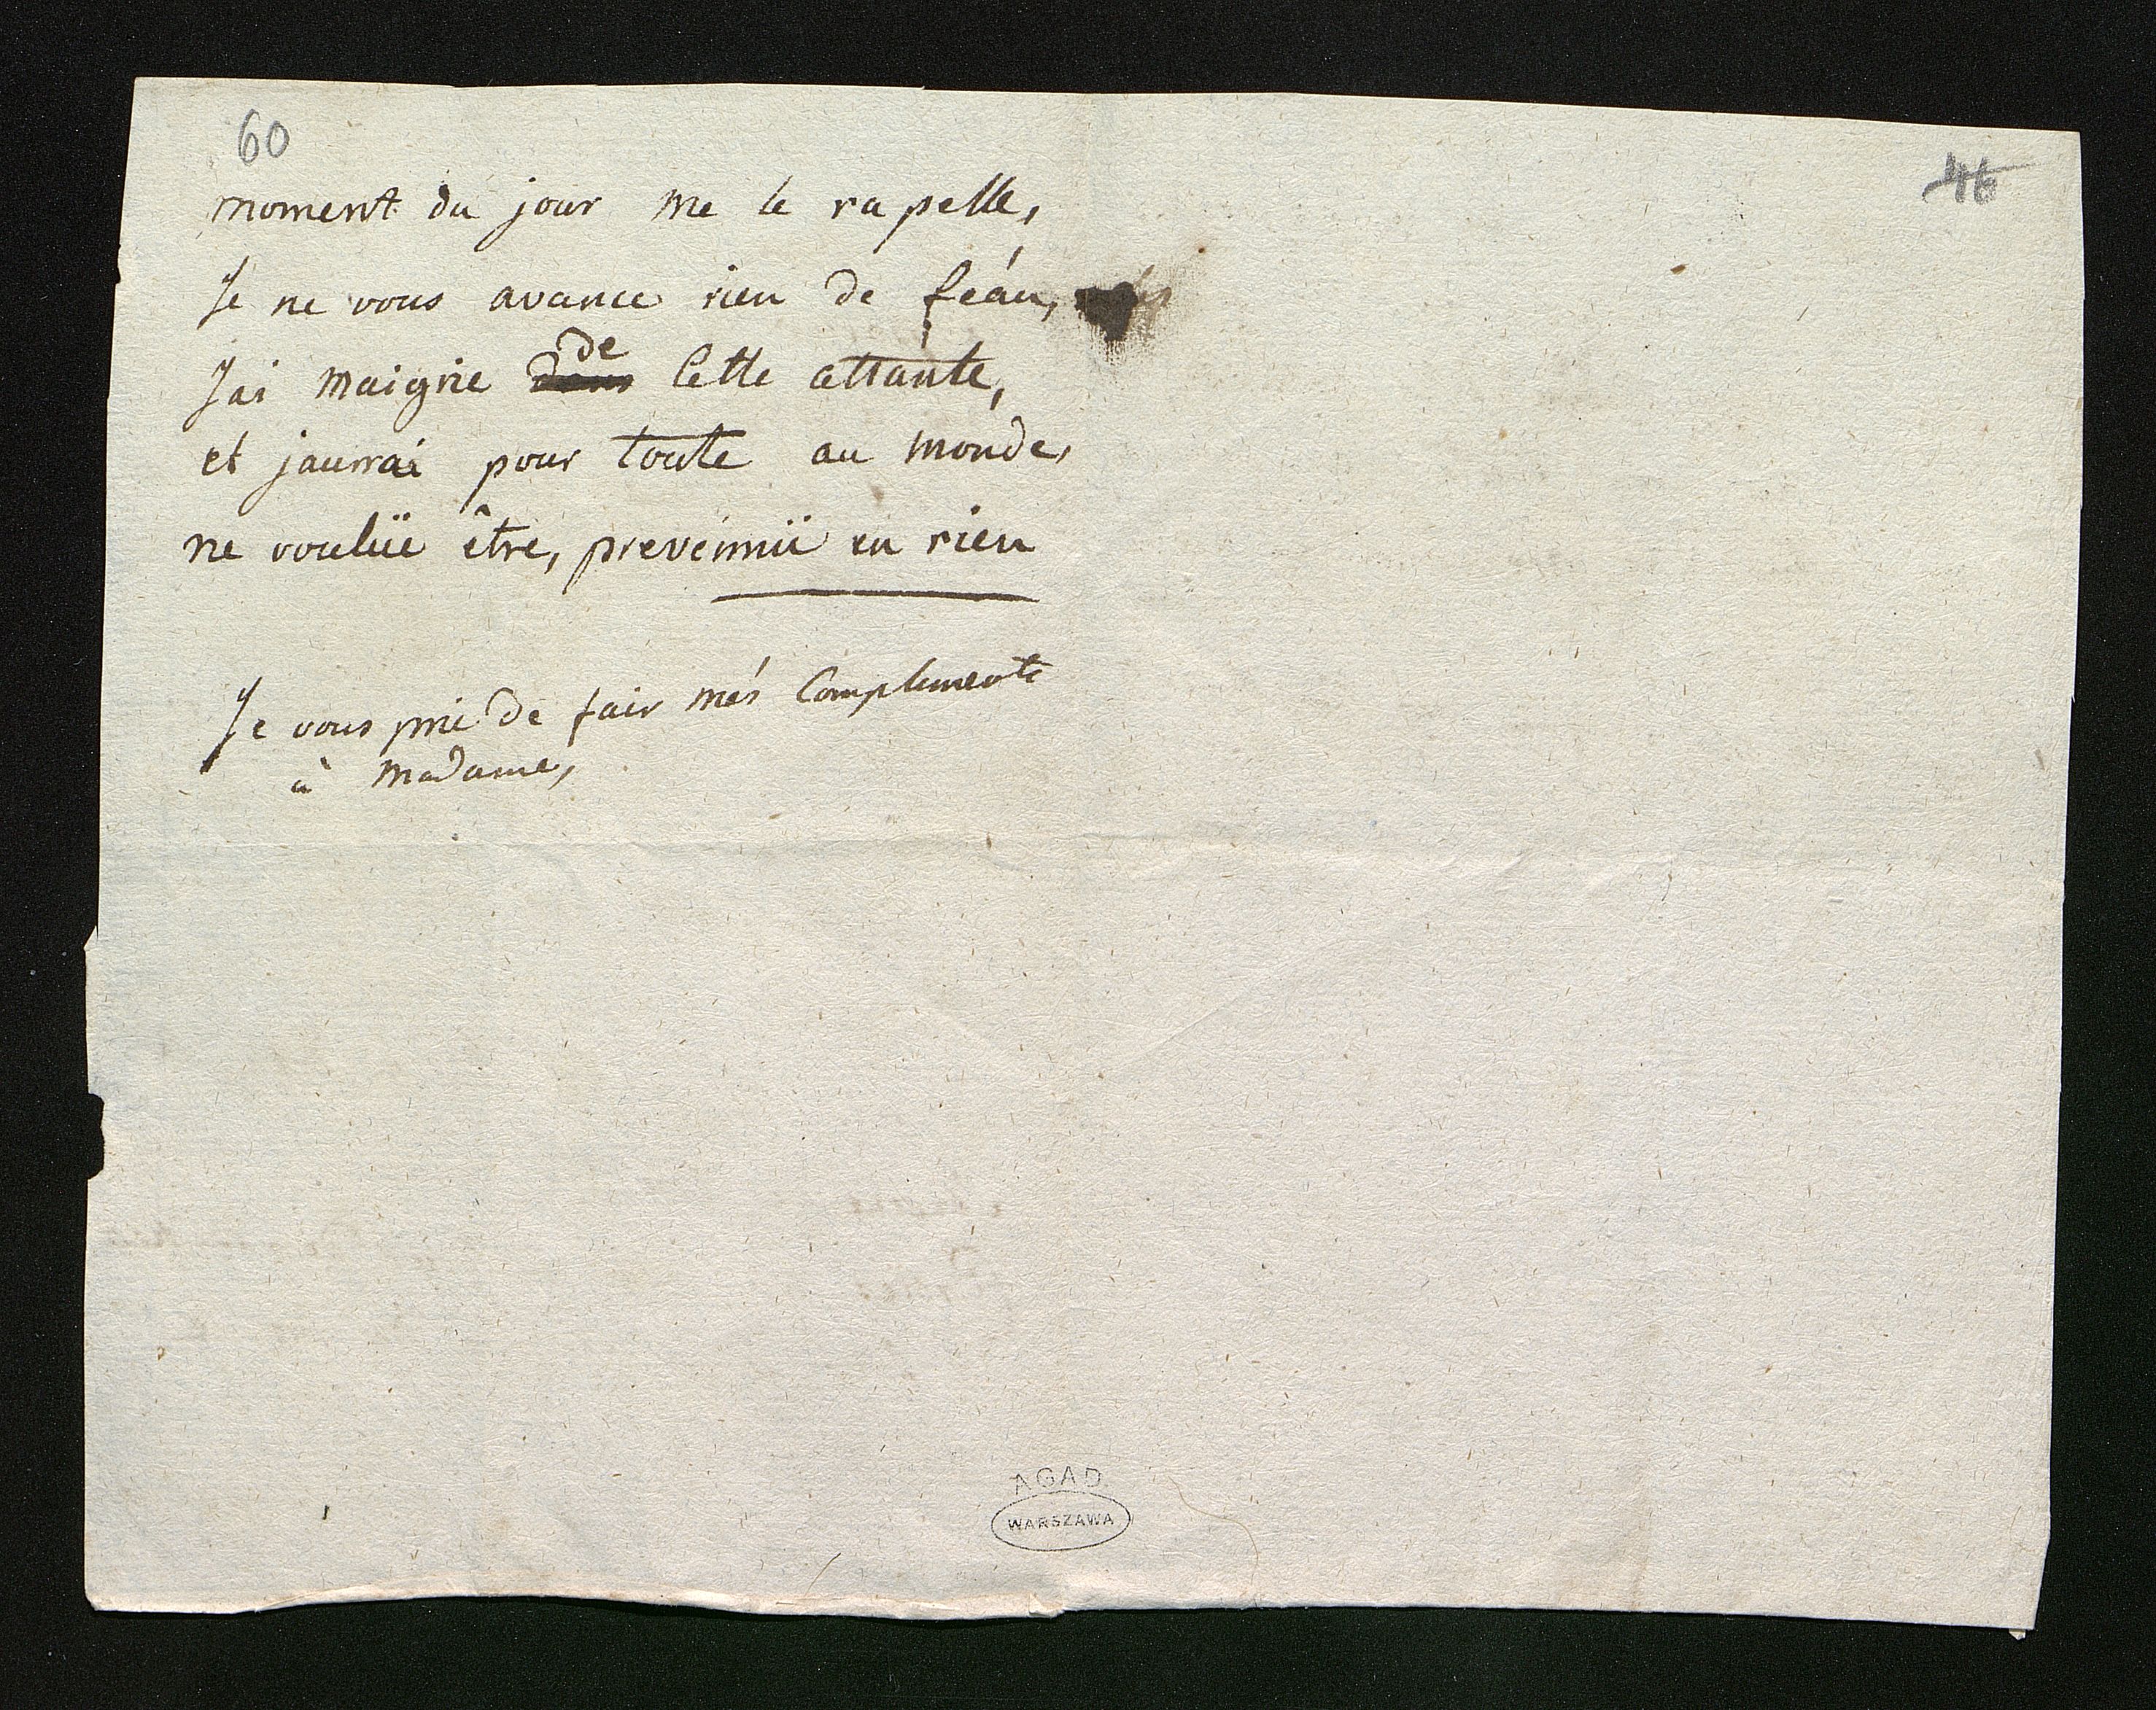 60
46
moment du jour me le rapelle,
Je ne vous avance rien de feáu,
Jai maigrie de cette attante,
et jaurrai pour toute au monde,
ne voulüe être, prevennüe en rien
Je vous prie de fair més Complements
à Madame,
AGAD
WARSZAWA